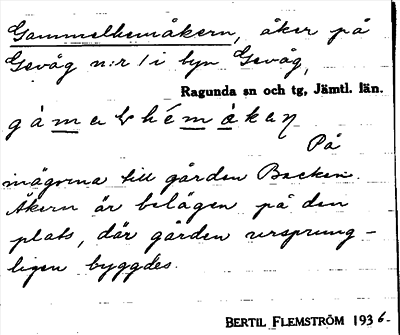 Gammelhemåkern, åker på
Gevåg n:r 1 i byn Gevåg,
Ragunda sn och tg, Jämtl. län.
På
inägorna till gården Backen.
Åkern är belägen på den
plats, där gården ursprung-
ligen byggdes.
BERTIL FLEMSTRÖM 1936.